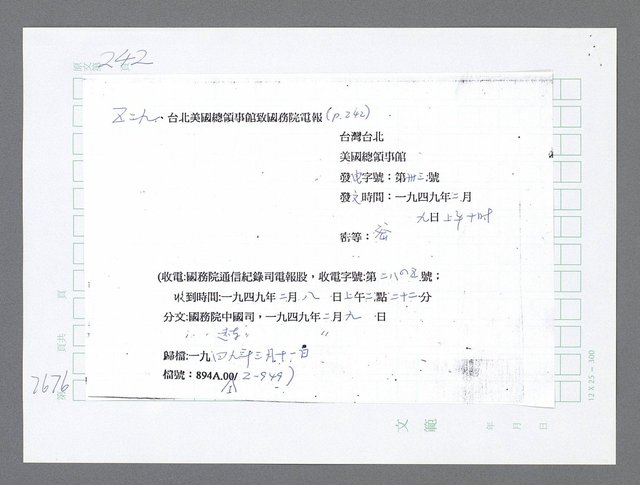 原文第242頁
五二九、台北美國總領事館致國務院電報(p.242)
台灣台北
美國總領事館
發電字號：第卅三號
發文時間：一九四九年二月
九日上午十時
密等：密
(收電:國務院通信紀錄司電報股，收電字號:第二八〇五號；
收到時間:一九四九年二月八日上午二點二十二分
分文:國務院中國司，一九四九年二月九日
歸檔:一九四九年三月十一日
檔號：894A.00/2-949)
頁共 頁
7676
第
12 X 25 = 300
文範
年 月 日